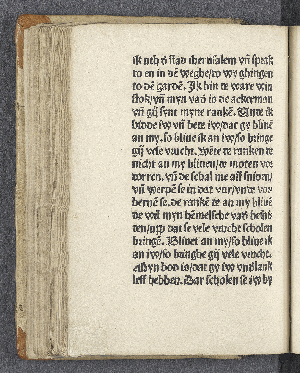 ik vth d͛ stad iherusalem vn̄ sprak
to en in dē weghe/do wy ghingen
to dē gardē. Jk bin de ware win
stok/vn̄ myn vad͛ is de ackerman
vn̄ gij synt myne rankē.
bidde iw vn̄ bede iw/dat gy bliuē
an my. so bliue ik an iw/so bringe
gij vele vrucht. Wēte de ranken de
nicht an my bliuen/de moten vor
dorren. vn̄ de schal me aff sniden/
vn̄ werpē se in dat vur/vnde vor
bernē se. de rankē de an my bliuē
de wil myn hēmelsche vad͛
den/vp dat se vele vrucht scholen
bringē. Bliuet an my/so bliue ik
an iw/so bringhe gij vele vrucht.
Mijn bod is/dat gy iw vnd͛lank
leff hebben. Dar scholen se iw by